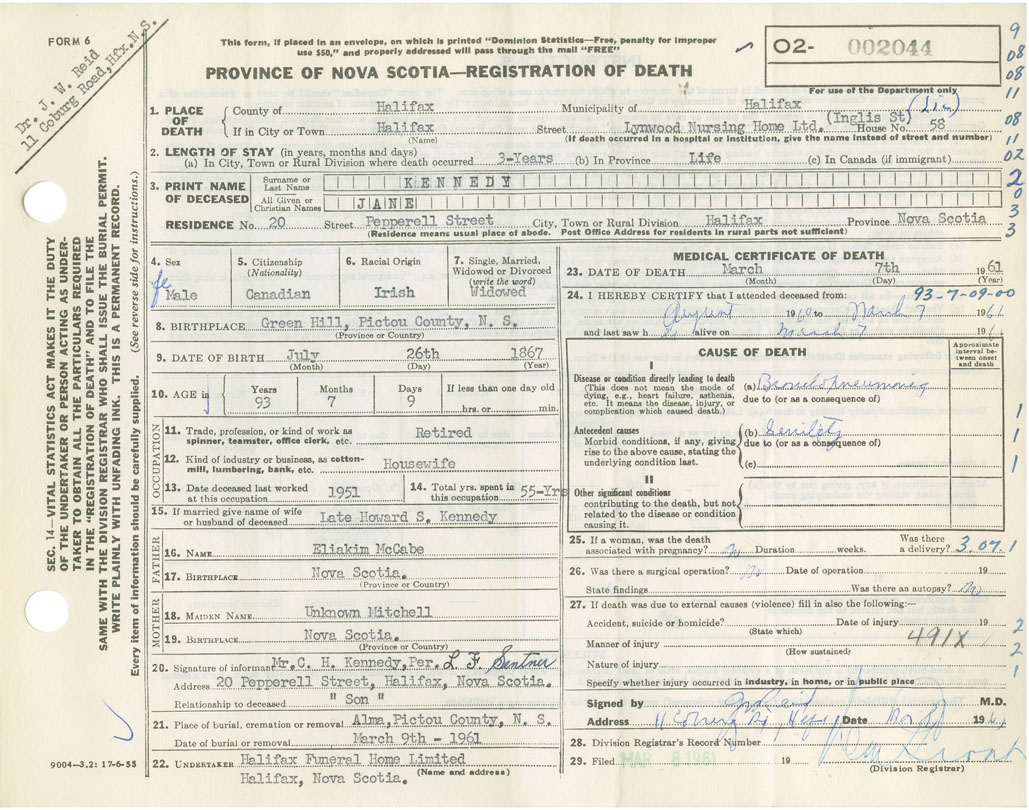 FORM 6
Dr. J. W. Reid
11 Coburg Road, Hfx. N.S.
This form, if placed in an envelope, on which is printed "Dominion Statistics—Free, penalty for improper
use $50," and properly addressed will pass through the mail "FREE"
PROVINCE OF NOVA SCOTIA—REGISTRATION OF DEATH
02- 002044
For use of the Department only
1. PLACE OF DEATH
County of Halifax Municipality of Halifax
If in City or Town Halifax Street Lynwood Nursing Home Ltd. (Inglis St) House No. 58
(Name) (If death occurred in a hospital or institution, give the name instead of street and number)
2. LENGTH OF STAY (in years, months and days)
(a) In City, Town or Rural Division where death occurred 3-Years (b) In Province Life (c) In Canada (if immigrant)
3. PRINT NAME OF DECEASED
Surname or Last Name KENNEDY
All Given or Christian Names JANE
RESIDENCE No. 20 Street Pepperell Street City, Town or Rural Division Halifax Province Nova Scotia
(Residence means usual place of abode. Post Office Address for residents in rural parts not sufficient)
9
08
08
11
08
11
02
2
0
3
3
4. Sex
fe Male
5. Citizenship
(Nationality)
Canadian
6. Racial Origin
Irish
7. Single, Married,
Widowed or Divorced
(write the word)
Widowed
8. BIRTHPLACE Green Hill, Pictou County, N. S.
(Province or Country)
9. DATE OF BIRTH July 26th 1867
(Month) (Day) (Year)
10. AGE in
Years 93
Months 7
Days 9
If less than one day old
hrs. or min.
OCCUPATION
11. Trade, profession, or kind of work as
spinner, teamster, office clerk, etc. Retired
12. Kind of industry or business, as cotton-
mill, lumbering, bank, etc. Housewife
13. Date deceased last worked
at this occupation 1951
14. Total yrs. spent in
this occupation 55-Yrs
15. If married give name of wife
or husband of deceased Late Howard S. Kennedy
FATHER
16. NAME Eliakim McCabe
17. BIRTHPLACE Nova Scotia.
(Province or Country)
MOTHER
18. MAIDEN NAME Unknown Mitchell
19. BIRTHPLACE Nova Scotia.
(Province or Country)
20. Signature of informant Mr. C. H. Kennedy, Per. L. F. Sentner
Address 20 Pepperell Street, Halifax, Nova Scotia.
Relationship to deceased " Son "
21. Place of burial, cremation or removal Alma, Pictou County, N. S.
Date of burial or removal March 9th - 1961
22. UNDERTAKER Halifax Funeral Home Limited
(Name and address)
Halifax, Nova Scotia.
MEDICAL CERTIFICATE OF DEATH
23. DATE OF DEATH March 7th 1961
(Month) (Day) (Year)
24. I HEREBY CERTIFY that I attended deceased from: 93-7-09-00
August 1960 to March 7 1961
and last saw h alive on March 7 196
CAUSE OF DEATH
Approximate
interval be-
tween onset
and death
I
Disease or condition directly leading to death
(This does not mean the mode of
dying, e.g., heart failure, asthenia,
etc. It means the disease, injury, or
complication which caused death.)
(a) Bronchopneumonia
due to (or as a consequence of)
Antecedent causes
Morbid conditions, if any, giving
rise to the above cause, stating the
underlying condition last.
(b) Senility
due to (or as a consequence of)
(c)
II
Other significant conditions
contributing to the death, but not
related to the disease or condition
causing it.
1
1
1
25. If a woman, was the death
associated with pregnancy? No Duration weeks. Was there
a delivery? 3.07.1
26. Was there a surgical operation? No Date of operation 19
State findings Was there an autopsy? No
27. If death was due to external causes (violence) fill in also the following:—
Accident, suicide or homicide? Date of injury 19
(State which)
Manner of injury 491X
(How sustained)
Nature of injury
Specify whether injury occurred in industry, in home, or in public place
2
2
1
Signed by J W Reid M.D.
Address 11 Coburg Rd, Date Mar 1961
28. Division Registrar's Record Number
29. Filed MAR 8 1961 19
(Division Registrar)
SEC. 14—VITAL STATISTICS ACT MAKES IT THE DUTY
OF THE UNDERTAKER OR PERSON ACTING AS UNDER-
TAKER TO OBTAIN ALL THE PARTICULARS REQUIRED
IN THE "REGISTRATION OF DEATH" AND TO FILE THE
SAME WITH THE DIVISION REGISTRAR WHO SHALL ISSUE THE BURIAL PERMIT.
WRITE PLAINLY WITH UNFADING INK. THIS IS A PERMANENT RECORD.
Every item of information should be carefully supplied. (See reverse side for instructions.)
9004—3.2: 17-6-55